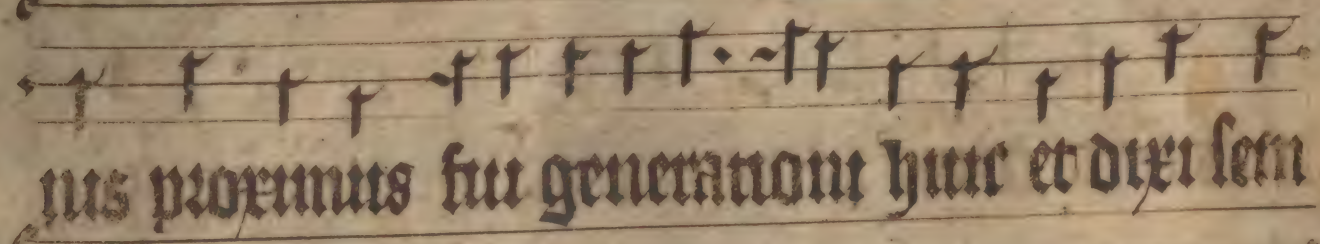 nus proximus fui generationi huic et dixi sem